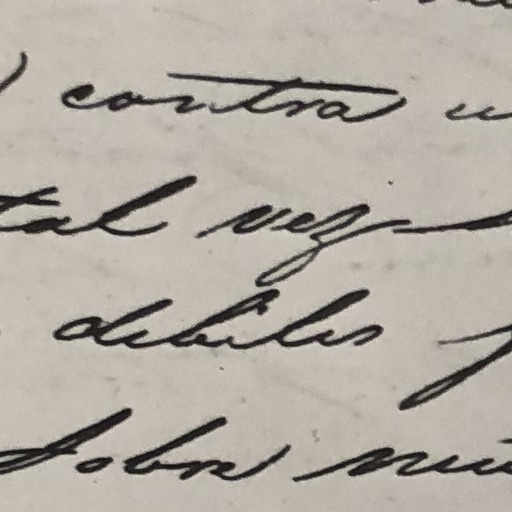 contra
tal vez
debiles
sobre